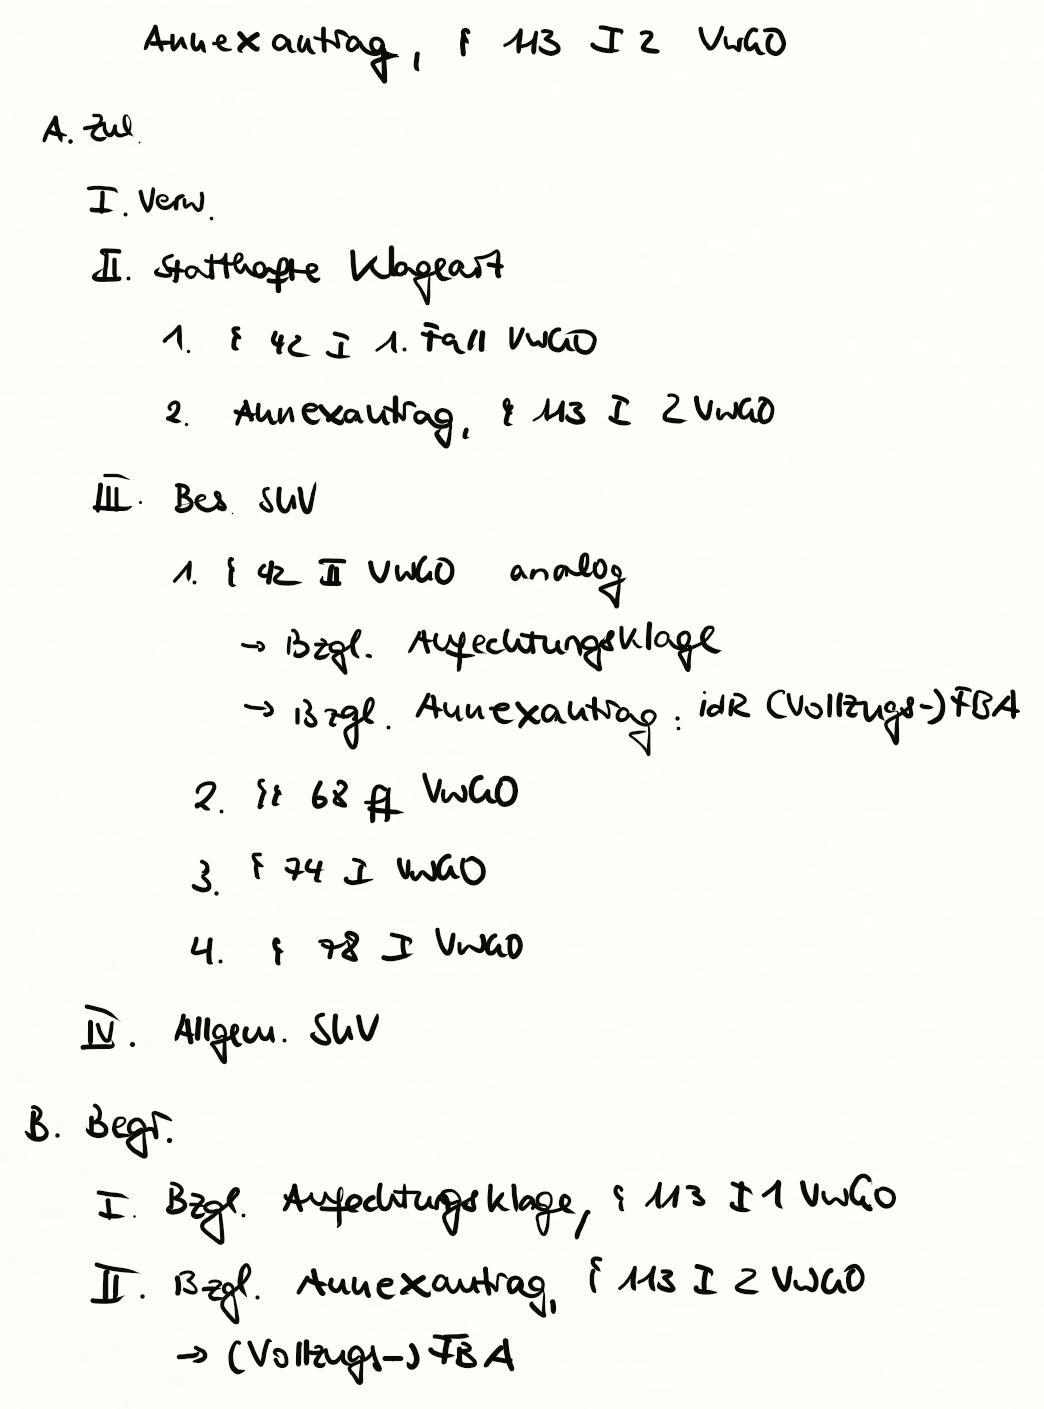 Annexantrag, § 113 I 2 VwGO
A. Zul.
I. Verw.
II. Statthafte Klageart
1. § 42 I 1. Fall VwGO
2. Annexantrag, § 113 I 2 VwGO
III. Bes. SUV
1. § 42 II VwGO analog
→ Bzgl. Anfechtungsklage
→ Bzgl. Annexantrag: idR (Vollzugs-)FBA
2. §§ 68 ff VwGO
3. § 74 I VwGO
4. § 78 I VwGO
IV. Allgem. SUV
B. Begr.
I. Bzgl. Anfechtungsklage, § 113 I 1 VwGO
II. Bzgl. Annexantrag, § 113 I 2 VwGO
→ (Vollzugs-)FBA